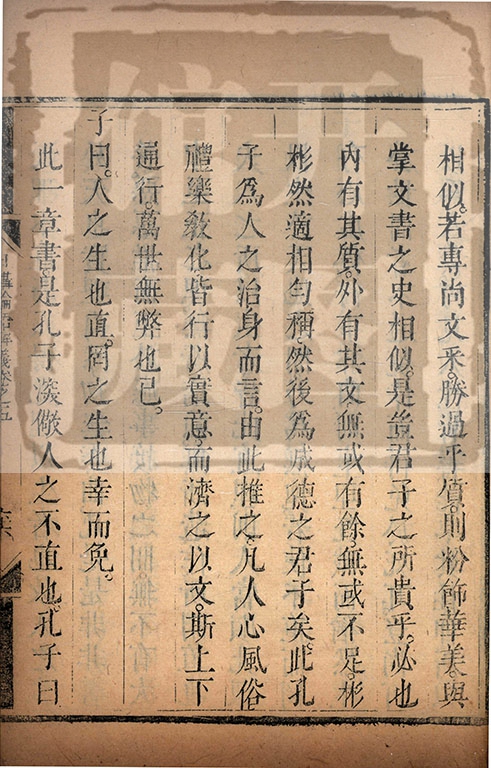 相似。若專尚文釆勝過乎質。則粉飾華美。與
掌文書之史相似。是豈君子之所貴乎。必也
內有其質。外有其文。無或有餘。無或不足。彬
彬然適相勻稱。然後為成德之君子矣。此孔
子為人之治身而言。由此推之。凡人心風俗
禮樂敎化皆行以實意。而濟之以文。斯上下
通行。萬世無弊也已。
子曰。人之生也直。罔之生也幸而免。
此一章書。是孔子深儆人之不直也。孔子曰